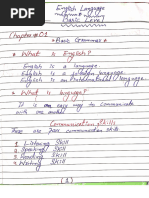 English Language
(Basic Level)
Chapter # 01
"Basic Grammar"
* What is English?
English is a language.
English is a foreign language.
English is an International language.
* What is language?
It is an easy way to communicate
with one another.
Communication Skills
There are four communication skills
1. Listening Skill
2. Speaking Skill
3. Reading Skill
4. Writing Skill
(1)